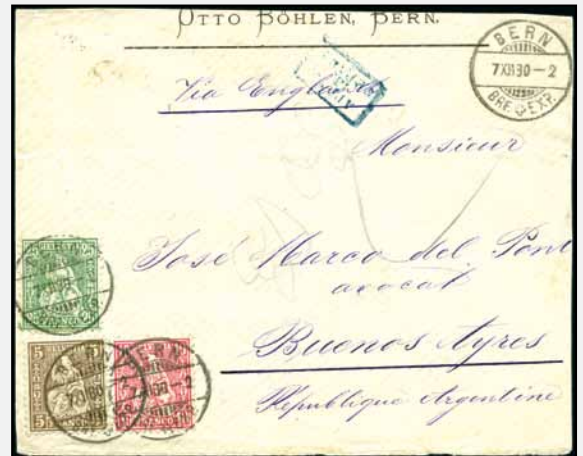 OTTO BÖHLEN, BERN.
BERN
7 XII 80 – 2
BRF. EXP.
Via England
Monsieur
José Marco del Pont
avocat
Buenos Ayres
République Argentine
BERN
5 5
BERN
80 – 2